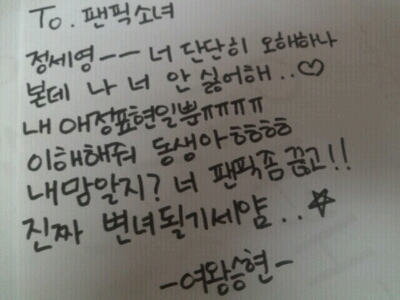 To. 팬픽소녀
정세영ㅡㅡ 너 단단히 오해하나
본데 나 너 안 싫어해..♡
내 애정표현일뿐ㅠㅠㅠㅠ
이해해줘 동생아ㅎㅎㅎㅎ
내맘알지? 너 팬픽좀 끊고!!
진짜 변녀될기세얌..☆
-여왕승현-